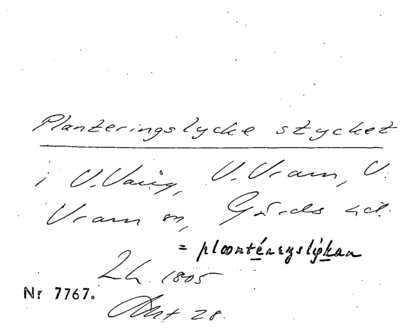 Planteringslycke stycket
i V. Vång, V. Vram, V.
Vram sn, Gärds hd.
= ploontéreŋslýkan
Lh. 1805
Nr 7767.
Akt 28.